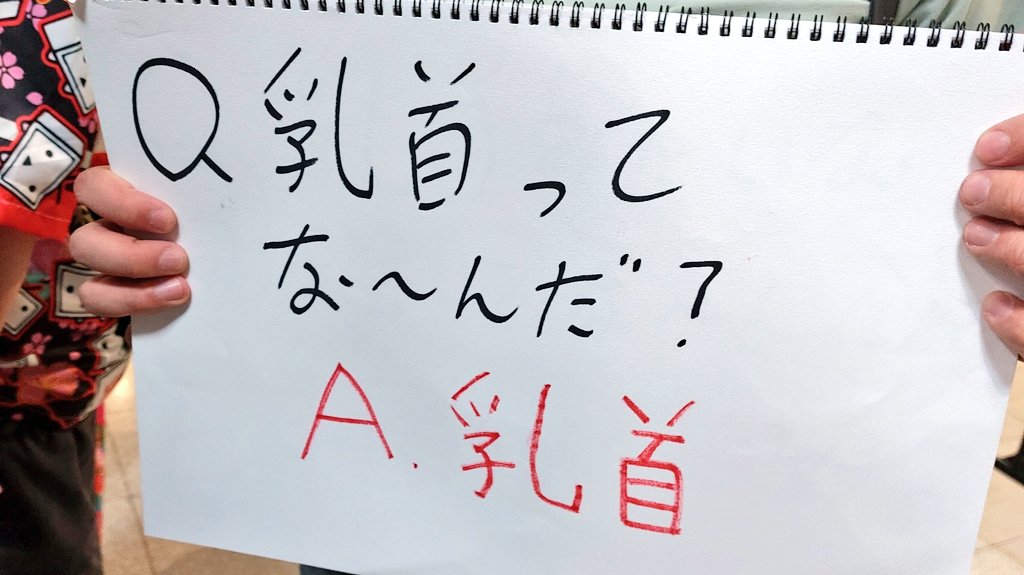 Q 乳首って
な〜んだ？
A. 乳首